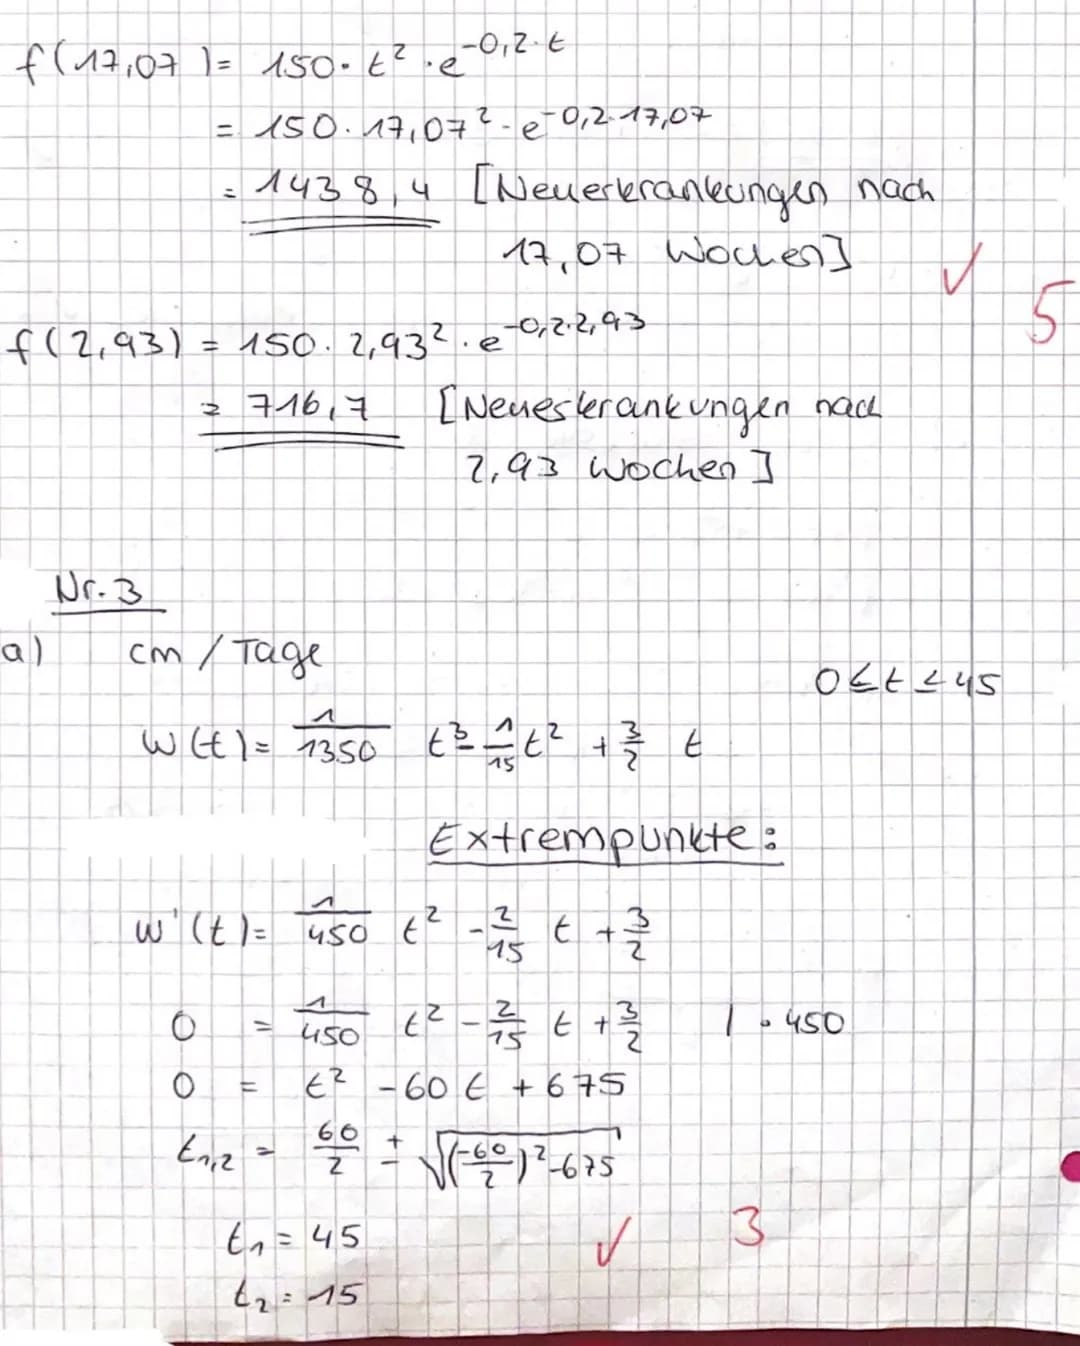 f(17,07) = 150 · t² · e^-0,2·t
= 150 · 17,07² · e^-0,2·17,07
= 1438,4 [Neuerkrankungen nach
17,07 Wochen]
✓ 5
f(2,93) = 150 · 2,93² · e^-0,2·2,93
= 716,7 [Neuerkrankungen nach
2,93 Wochen]
Nr. 3
a) cm / Tage
0 ≤ t ≤ 45
W(t) = 1/1350 t³ - 1/15 t² + 3/2 t
Extrempunkte:
w'(t) = 1/450 t² - 2/15 t + 3/2
0 = 1/450 t² - 2/15 t + 3/2 | · 450
0 = t² - 60 t + 675
t1,2 = 60/2 ± √((-60/2)² - 675)
t1 = 45
✓ 3
t2 = 15